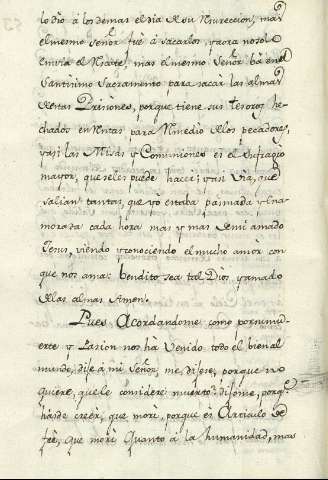 lo dio á los demas el dia de su Resureccion, mas
el mesmo señor fué á sacarlos, y aora no solo
envia el Rescate, mas el mesmo Señor bá en el
Santisimo Sacramento para sacar las almas
de estas Prisiones, porque tiene sus tesoros, he-
chados en Rentas para Remedio de los pecadores,
y asi las Misas, y Comuniones es el sufragio
mayor, que seles puede hacer, y asi via, que
salian tantas, que yo estaba pasmada y ena-
morada cada hora mas y mas de mi amado
Jesus, viendo y conociendo el mucho amor con
que nos ama: bendito sea tal Dios y amado
de las almas Amen.
Pues Acordandome como por su mu-
erte y Pasion nos ha Venido todo el bien al
mundo, dije á mi Señor, me dijese, porque no
quiere, que le considere muerto? dijome, porq.
hásde creer, que morí, porque es Articulo de
feé, que morí quanto á la humanidad, mas